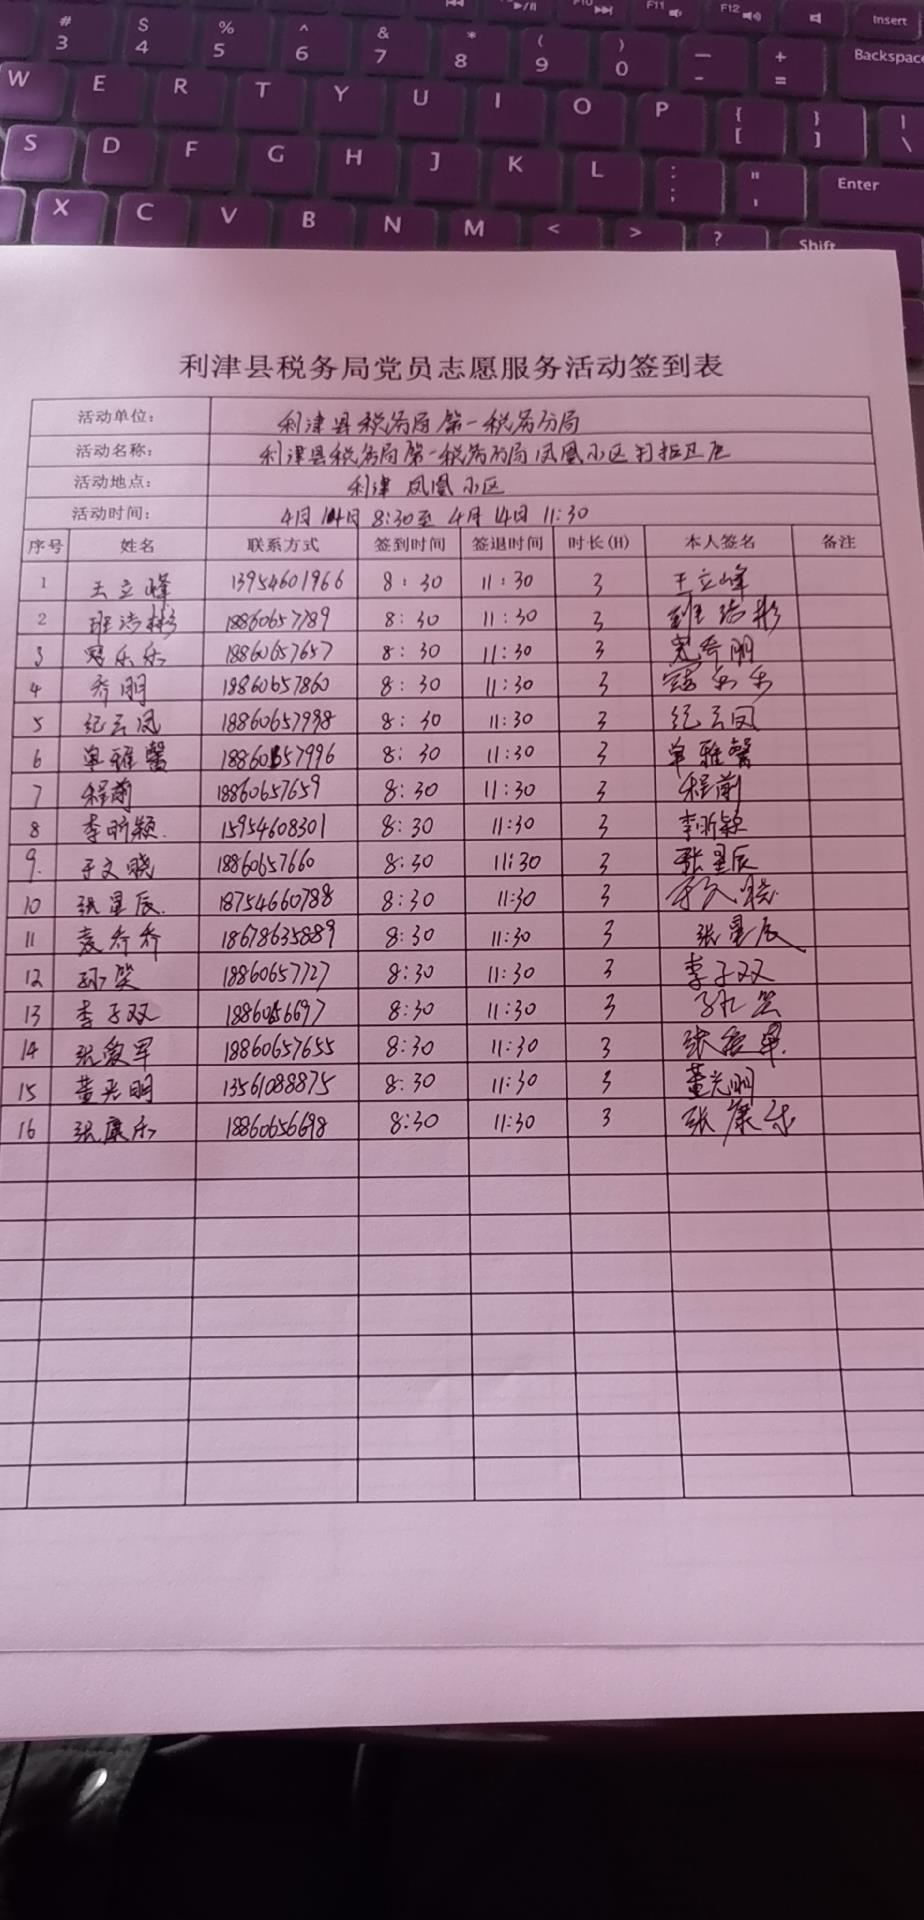 # 3 $ 4 % 5 ^ 6 & 7 * 8 ( 9 ) 0 — - + = Backspace
F11 F12 Insert
W E R T Y U I O P { [ } ] | \
S D F G H J K L : ; " ' Enter
X C V B N M < > ? Shift
利津县税务局党员志愿服务活动签到表
活动单位: 利津县税务局第一税务分局
活动名称: 利津县税务局第一税务分局凤凰小区打扫卫生
活动地点: 利津 凤凰小区
活动时间: 4月14日 8:30至 4月14日 11:30
序号 姓名 联系方式 签到时间 签退时间 时长(H) 本人签名 备注
1 王立峰 13954601966 8:30 11:30 3 王立峰
2 班浩彬 18860657789 8:30 11:30 3 班浩彬
3 寇乐乐 18860657657 8:30 11:30 3
4 乔明 18860657860 8:30 11:30 3 寇乐乐
5 纪云凤 18860657998 8:30 11:30 3 纪云凤
6 单雅馨 18860657996 8:30 11:30 3 单雅馨
7 程前 18860657659 8:30 11:30 3 程前
8 李昕颖 15954608301 8:30 11:30 3 李昕颖
9 于文晓 18860657660 8:30 11:30 3 张星辰
10 张星辰 18754660788 8:30 11:30 3 于文晓
11 乔乔 18678635889 8:30 11:30 3 张星辰
12 孙笑 18860657727 8:30 11:30 3 李子双
13 李子双 18860656697 8:30 11:30 3 孙笑
14 张俊军 18860657655 8:30 11:30 3 张俊军
15 董光明 13561088875 8:30 11:30 3 董光明
16 张康乐 18860656698 8:30 11:30 3 张康乐